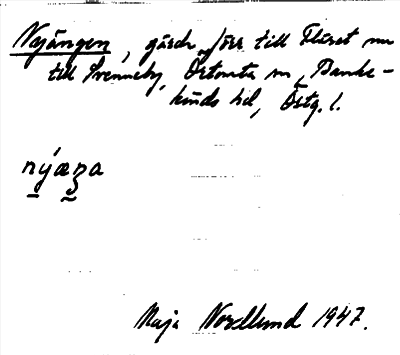 Nyängen, gärde, förr till Fläret nu
till Svenneby, Östomta sn, Banke-
kinds hd, Östg. l.
nýæŋa
Maja Nordlund 1947.